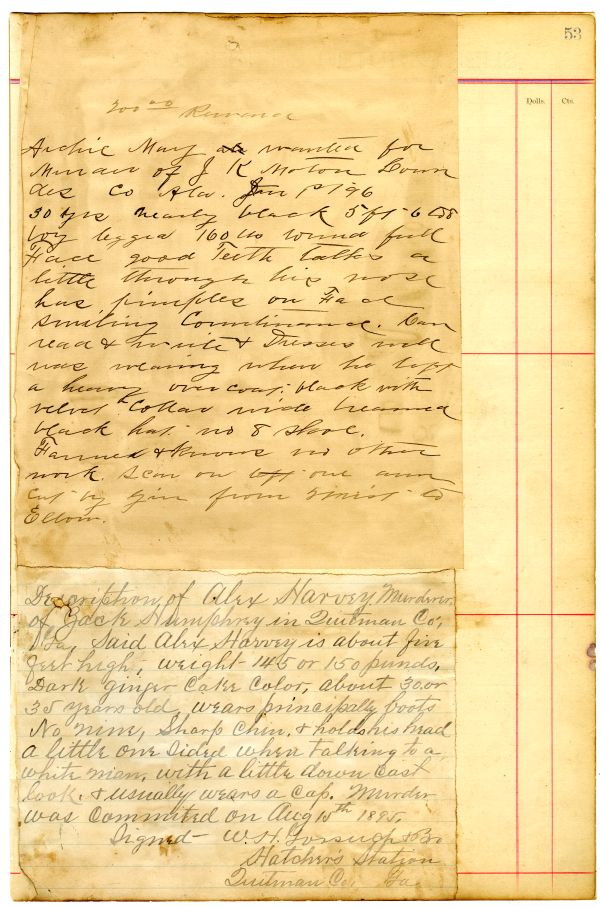 53
Dolls. Cts.
200 00 Reward
Archie May wanted for
Murder of J K Moton Lown
des Co Ala. Jan 1st 96
30 yrs nearly black 5 ft 6
legged 160 lbs round full
Face good Teeth talks a
little through his nose
has pimples on Face
smiling Countinance. Can
read & write & Dresses well
was wearing when he left
a heavy over coat black with
velvet Collar wide breamed
black hat no 8 shoe.
Farmer & knows no other
work. Scar on one arm
cut by gin from to
Elbow.
Description of Alex Harvey Murderer
of Jack Humphrey in Quitman Co,
Ga, Said Alex Harvey is about five
feet high, weight 145 or 150 punds,
Dark ginger Cake Color, about 30 or
35 years old, wears principally boots
No nine, Sharp Chin, & holds his head
a little one Sided when talking to a
white man, with a little down Cast
look. & usually wears a Cap. Murder
was Commited on Aug 15th 1895.
Signed - W. H. & Bro
Hatcher's Station
Quitman Co, Ga.